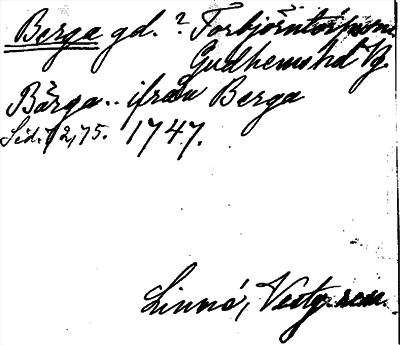 Berga gd. ? Torbjörntorps sn.
Gudhems hd Vg
Bärga.. ifrån Berga
Sid. 72, 75. 1747.
Linné, Vestg. resa.